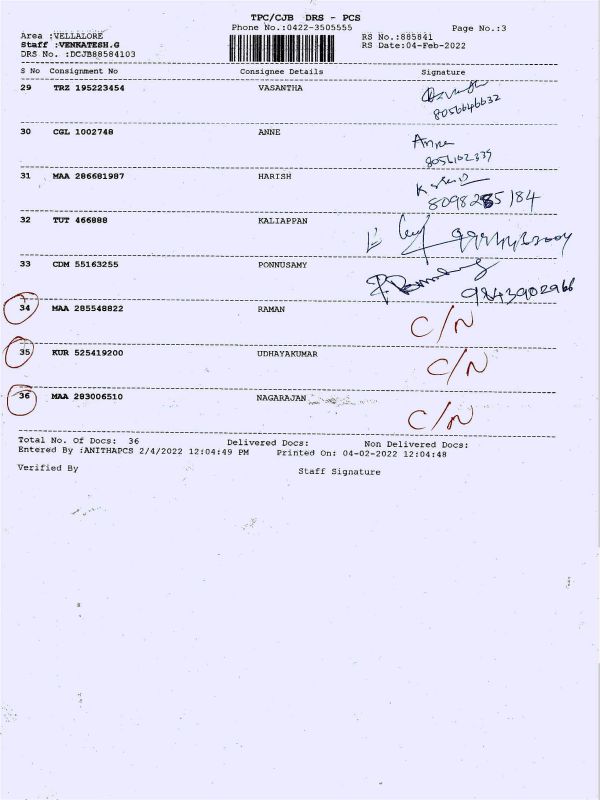 TPC/CJB DRS - PCS
Phone No.:0422-3505555 Page No.:3
Area :VELLALORE RS No.:885841
Staff :VENKATESH.G RS Date:04-Feb-2022
DRS No. :DCJB88584103
S No Consignment No Consignee Details Signature
29 TRZ 195223454 VASANTHA
8056646632
30 CGL 1002748 ANNE Anne
8056102339
31 MAA 286681987 HARISH
8098285184
32 TUT 466888 KALIAPPAN
33 CDM 55163255 PONNUSAMY
9843902966
34 MAA 285548822 RAMAN C/N
35 KUR 525419200 UDHAYAKUMAR C/N
36 MAA 283006510 NAGARAJAN C/N
Total No. Of Docs: 36 Delivered Docs: Non Delivered Docs:
Entered By :ANITHAPCS 2/4/2022 12:04:49 PM Printed On: 04-02-2022 12:04:48
Verified By Staff Signature